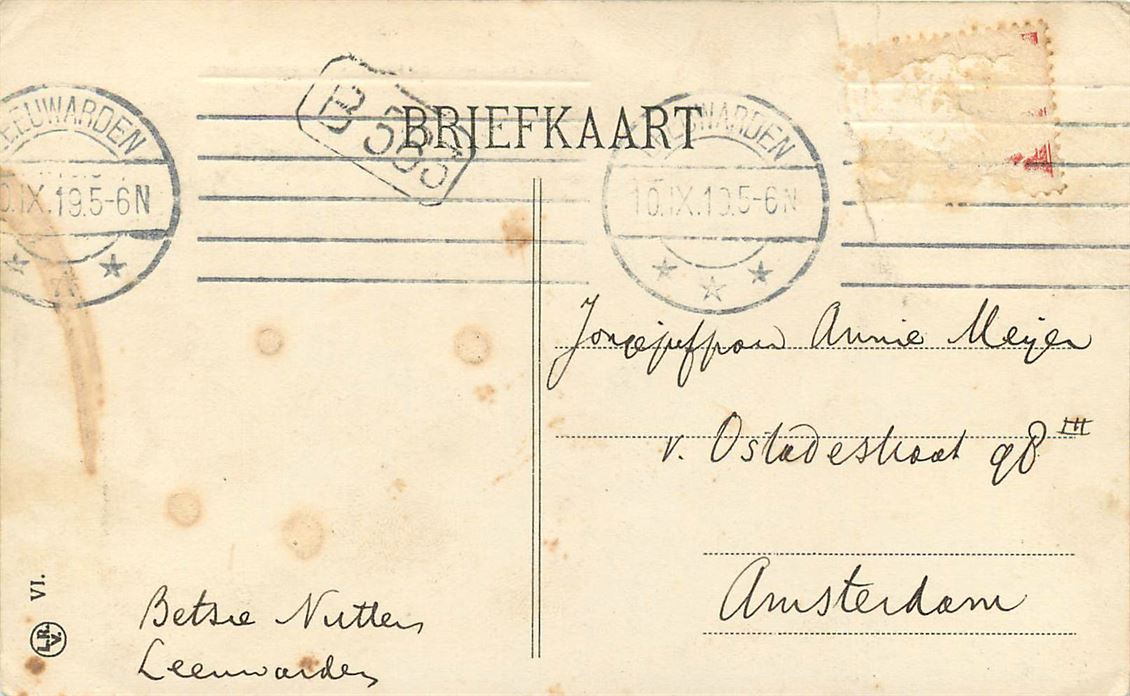 LEEUWARDEN
10.IX.19.5-6N
B 583
BRIEFKAART
LEEUWARDEN
10.IX.19.5-6N
Jongejuffrouw Annie Meijer
v. Ostadestraat 98 III
Amsterdam
Betsie Nutters
Leeuwarden
VI.
L.R.V.